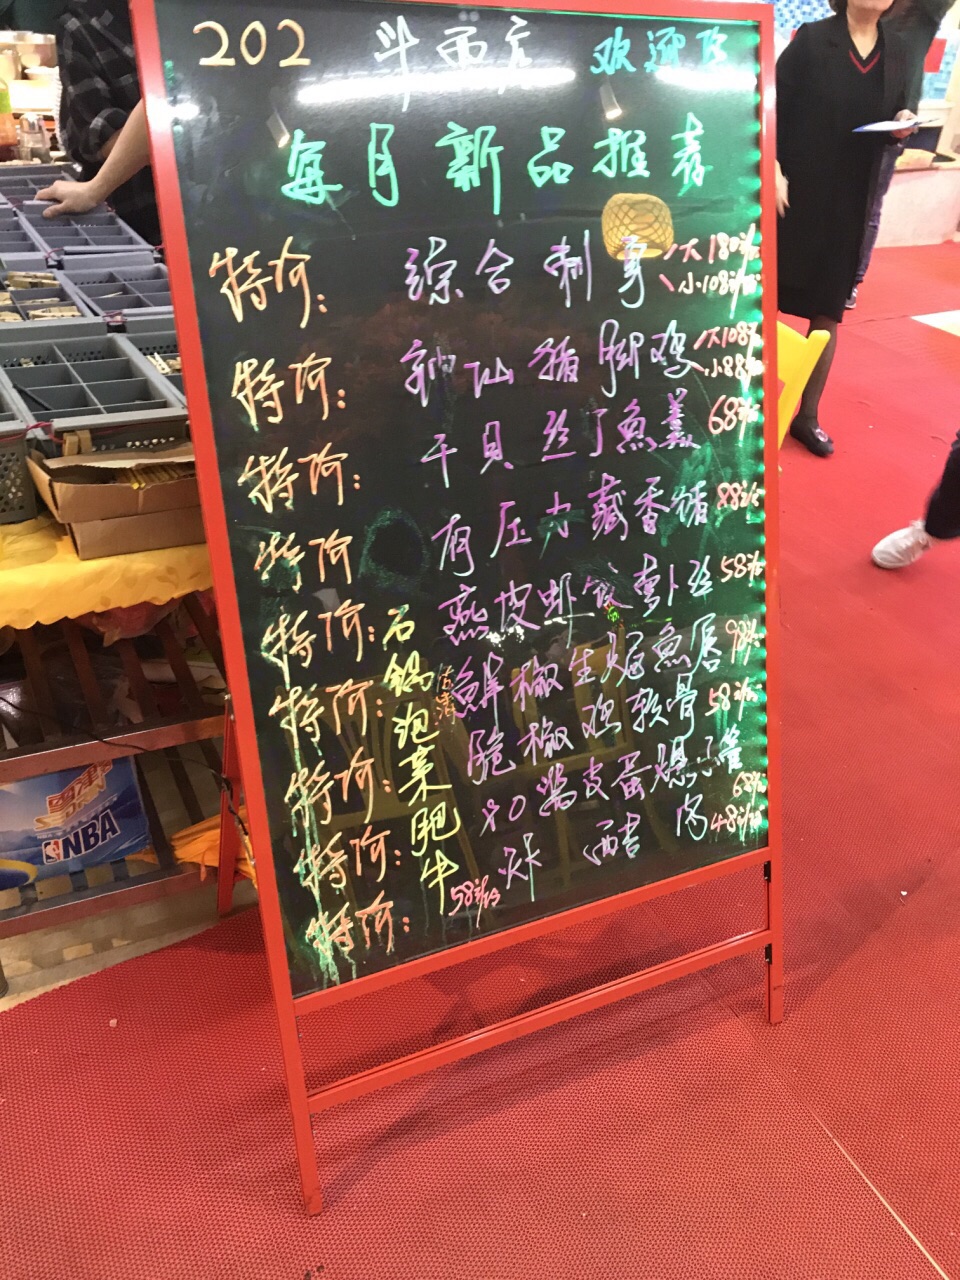 202 斗西店 欢迎您
每月新品推荐
特价: 综合刺身 大180元/份 小108元/份
特价: 神仙猪脚鸡 大108元 小88元/份
特价: 干贝丝丁魚羹 68元/份
特价 有压力藏香猪 88元/份
特价: 燕皮虾饺萝卜丝 58元/份
特价: 鲜椒生焗魚唇 98元/份
特价: 脆椒鸡软骨 58元/份
特价: XO酱皮蛋爆小管 68元/份
特价: 炸醋肉 48元/份
石锅泡菜肥牛 58元/份
NBA